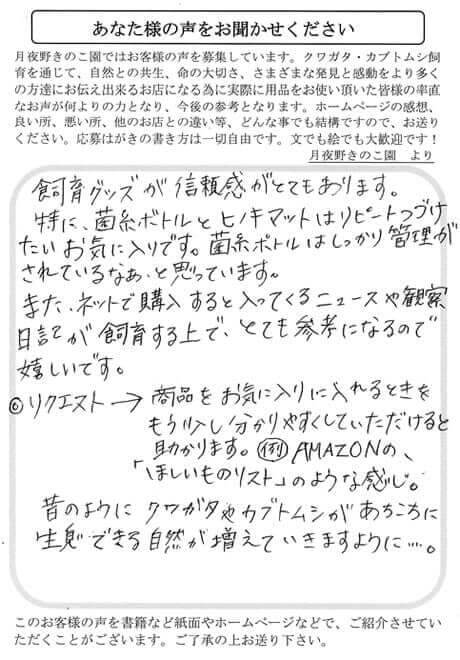 あなた様の声をお聞かせください
月夜野きのこ園ではお客様の声を募集しています。クワガタ・カブトムシ飼
育を通じて、自然との共生、命の大切さ、さまざまな発見と感動をより多く
の方達にお伝え出来るお店になる為に実際に用品をお使い頂いた皆様の率直
なお声が何よりの力となり、今後の参考となります。ホームページの感想、
良い所、悪い所、他のお店との違い等、どんな事でも結構ですので、お送り
ください。応募はがきの書き方は一切自由です。文でも絵でも大歓迎です！
月夜野きのこ園　より
飼育グッズが信頼感がとてもあります。
特に、菌糸ボトルとヒノキマットはリピートつづけ
たいお気に入りです。菌糸ボトルはしっかり管理が
されているなぁ、と思っています。
また、ネットで購入すると入ってくるニュースや観察
日記が飼育する上で、とても参考になるので
嬉しいです。
◎リクエスト→ 商品をお気に入りに入れるときを
もう少し分かりやすくしていただけると
助かります。例 AMAZONの、
「ほしいものリスト」のような感じ。
昔のように クワガタやカブトムシがあちこちに
生息できる自然が増えていきますように…。
このお客様の声を書籍など紙面やホームページなどで、ご紹介させてい
ただくことがございます。ご了承の上お送り下さい。